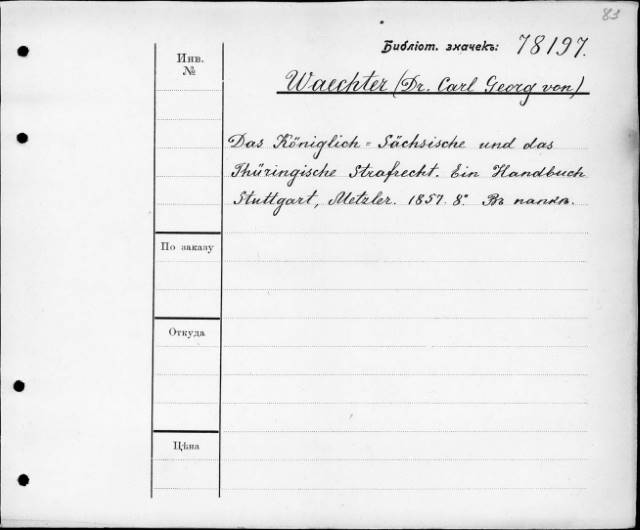 83
Библіот. значекъ: 78197.
Инв.
№
Waechter (Dr. Carl Georg von)
Das Königlich=Sächsische und das
Thüringische Strafrecht. Ein Handbuch
Stuttgart, Metzler. 1857. 8°. Въ папкѣ.
По заказу
Откуда
Цѣна